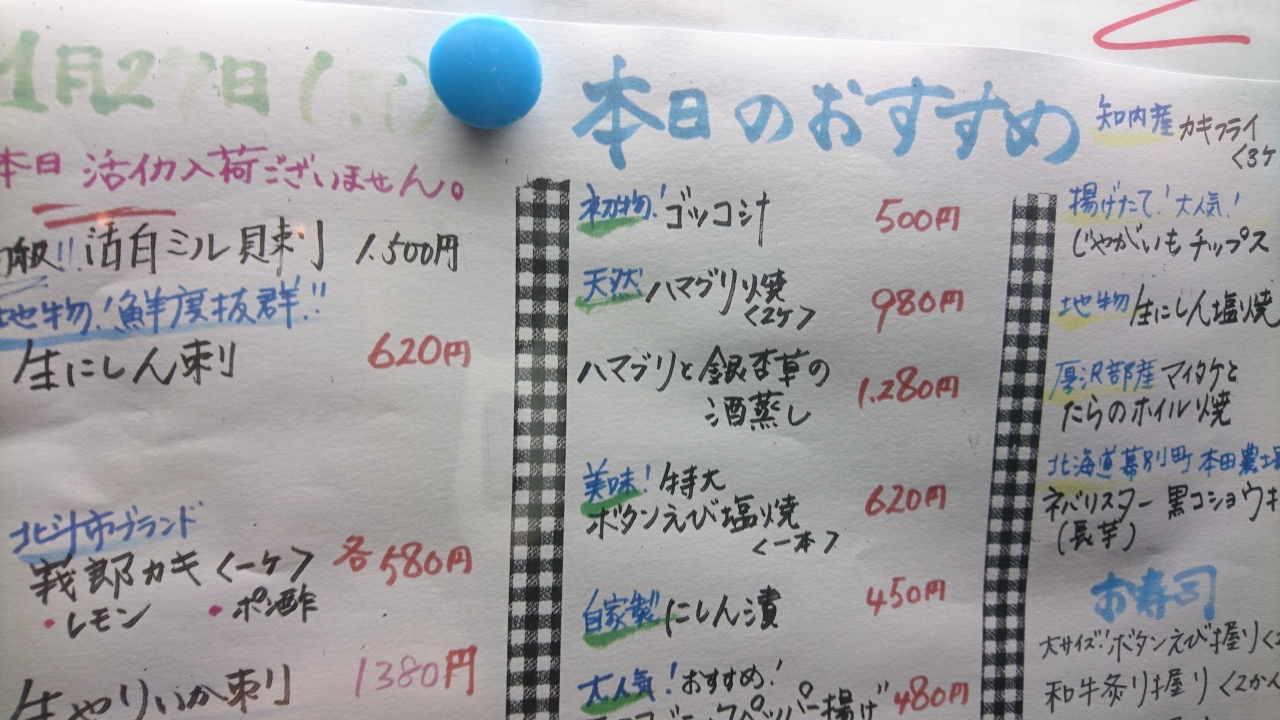 1月27日(月)
本日 活イカ入荷ございません。
活白ミル貝刺 1.500円
地物!鮮度抜群!!
生にしん刺 620円
北斗市ブランド
峩郎カキ<一ケ> 各580円
・レモン ・ポン酢
生やりいか刺 1380円
本日のおすすめ
初物!ゴッコ汁 500円
天然 ハマグリ焼 980円
<2ケ>
ハマグリと銀杏草の
酒蒸し 1.280円
美味!特大
ボタンえび塩焼 620円
<一本>
自家製にしん漬 450円
大人気!おすすめ!
ペッパー揚げ 480円
知内産 カキフライ
<3ケ
揚げたて!大人気!
じゃがいもチップス
地物 生にしん塩焼
厚沢部産 マイタケと
たらのホイル焼
北海道幕別町 本田農場
ネバリスター 黒コショウキ
(長芋)
お寿司
大サイズ!ボタンえび握り<
和牛炙り握り<2かん